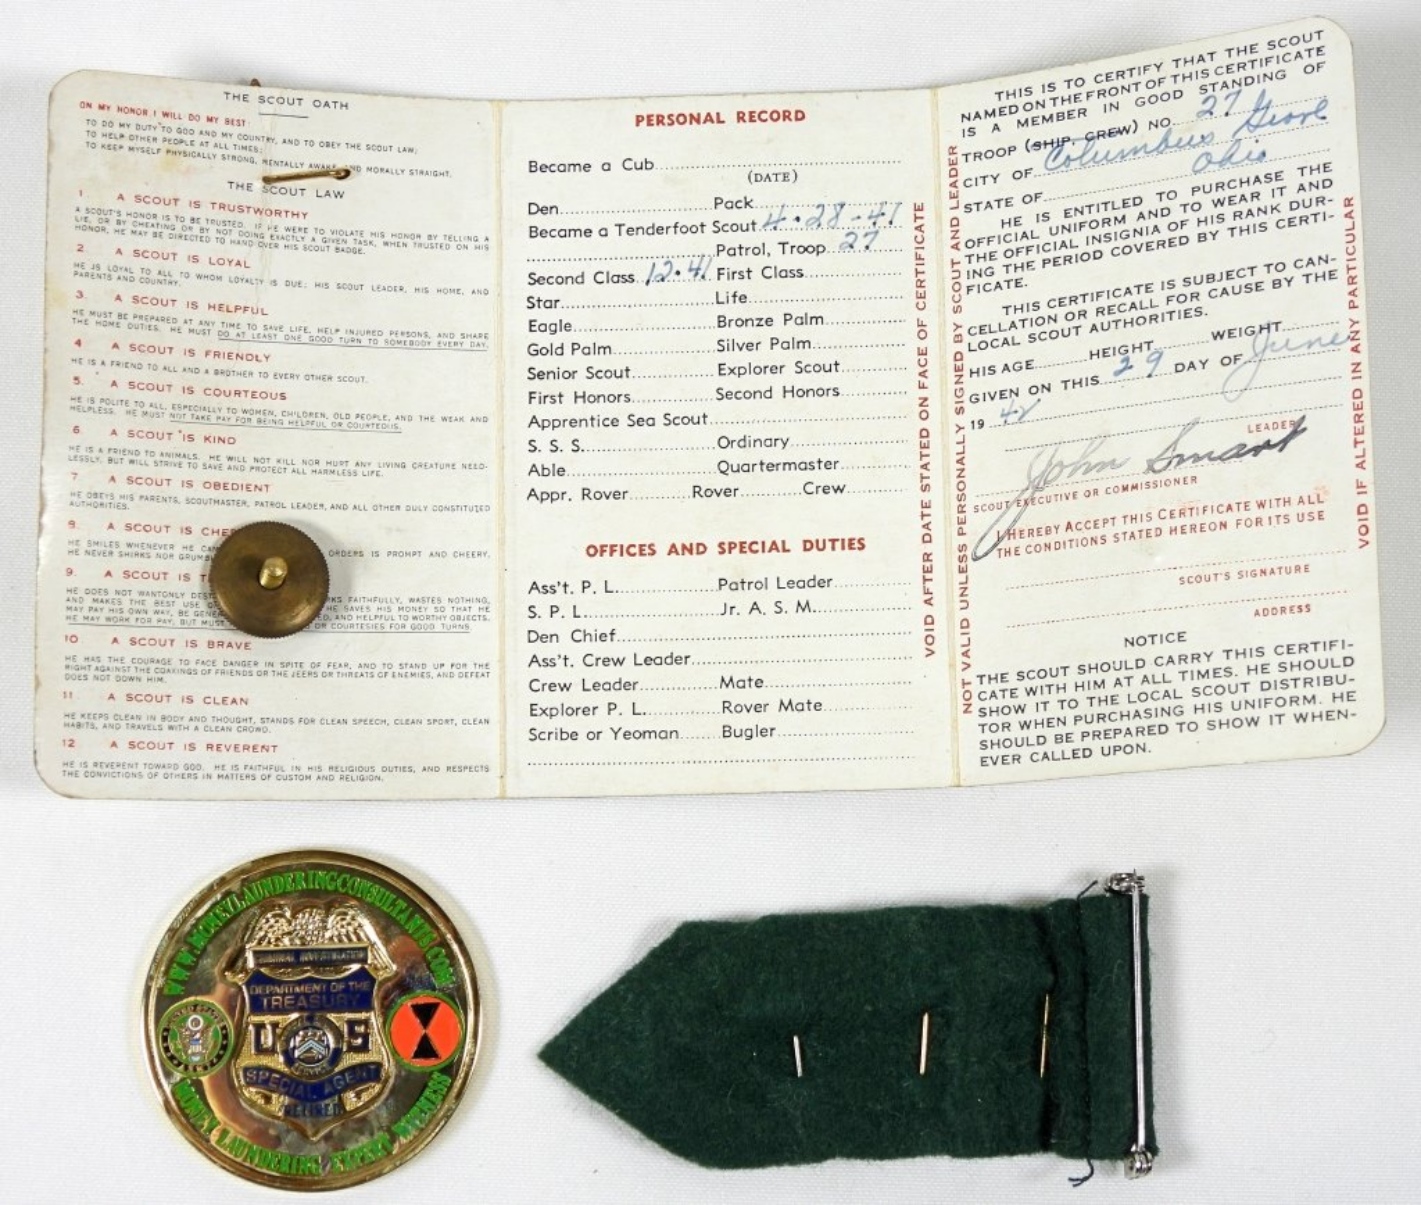 THE SCOUT OATH
ON MY HONOR I WILL DO MY BEST:
TO DO MY DUTY TO GOD AND MY COUNTRY, AND TO OBEY THE SCOUT LAW;
TO HELP OTHER PEOPLE AT ALL TIMES;
TO KEEP MYSELF PHYSICALLY STRONG, MENTALLY AWAKE, AND MORALLY STRAIGHT.
THE SCOUT LAW
1. A SCOUT IS TRUSTWORTHY
A SCOUT'S HONOR IS TO BE TRUSTED. IF HE WERE TO VIOLATE HIS HONOR BY TELLING A
LIE, OR BY CHEATING OR BY NOT DOING EXACTLY A GIVEN TASK, WHEN TRUSTED ON HIS
HONOR, HE MAY BE DIRECTED TO HAND OVER HIS SCOUT BADGE.
2. A SCOUT IS LOYAL
HE IS LOYAL TO ALL TO WHOM LOYALTY IS DUE: HIS SCOUT LEADER, HIS HOME, AND
PARENTS AND COUNTRY.
3. A SCOUT IS HELPFUL
HE MUST BE PREPARED AT ANY TIME TO SAVE LIFE, HELP INJURED PERSONS, AND SHARE
THE HOME DUTIES. HE MUST DO AT LEAST ONE GOOD TURN TO SOMEBODY EVERY DAY.
4 A SCOUT IS FRIENDLY
HE IS A FRIEND TO ALL AND A BROTHER TO EVERY OTHER SCOUT.
5. A SCOUT IS COURTEOUS
HE IS POLITE TO ALL, ESPECIALLY TO WOMEN, CHILDREN, OLD PEOPLE, AND THE WEAK AND
HELPLESS. HE MUST NOT TAKE PAY FOR BEING HELPFUL OR COURTEOUS.
6. A SCOUT IS KIND
HE IS A FRIEND TO ANIMALS. HE WILL NOT KILL NOR HURT ANY LIVING CREATURE NEED-
LESSLY, BUT WILL STRIVE TO SAVE AND PROTECT ALL HARMLESS LIFE.
7 A SCOUT IS OBEDIENT
HE OBEYS HIS PARENTS, SCOUTMASTER, PATROL LEADER, AND ALL OTHER DULY CONSTITUTED
AUTHORITIES.
8. A SCOUT IS CHEE
HE SMILES WHENEVER HE CAN ORDERS IS PROMPT AND CHEERY.
HE NEVER SHIRKS NOR GRUMB
9. A SCOUT IS T
HE DOES NOT WANTONLY DEST RKS FAITHFULLY, WASTES NOTHING,
AND MAKES THE BEST USE OF HE SAVES HIS MONEY SO THAT HE
MAY PAY HIS OWN WAY, BE GENE ED, AND HELPFUL TO WORTHY OBJECTS.
HE MAY WORK FOR PAY, BUT MUST OR COURTESIES FOR GOOD TURNS.
10 A SCOUT IS BRAVE
HE HAS THE COURAGE TO FACE DANGER IN SPITE OF FEAR, AND TO STAND UP FOR THE
RIGHT AGAINST THE COAXINGS OF FRIENDS OR THE JEERS OR THREATS OF ENEMIES, AND DEFEAT
DOES NOT DOWN HIM.
11 A SCOUT IS CLEAN
HE KEEPS CLEAN IN BODY AND THOUGHT, STANDS FOR CLEAN SPEECH, CLEAN SPORT, CLEAN
HABITS, AND TRAVELS WITH A CLEAN CROWD.
12. A SCOUT IS REVERENT
HE IS REVERENT TOWARD GOD. HE IS FAITHFUL IN HIS RELIGIOUS DUTIES, AND RESPECTS
THE CONVICTIONS OF OTHERS IN MATTERS OF CUSTOM AND RELIGION.
PERSONAL RECORD
Became a Cub
(DATE)
Den Pack
Became a Tenderfoot Scout 4·28-41
Patrol, Troop 27
Second Class 12·41 First Class
Star Life
Eagle Bronze Palm
Gold Palm Silver Palm
Senior Scout Explorer Scout
First Honors Second Honors
Apprentice Sea Scout
S. S. S. Ordinary
Able Quartermaster
Appr. Rover Rover Crew
OFFICES AND SPECIAL DUTIES
Ass't. P. L. Patrol Leader
S. P. L. Jr. A. S. M.
Den Chief
Ass't. Crew Leader
Crew Leader Mate
Explorer P. L. Rover Mate
Scribe or Yeoman Bugler
VOID AFTER DATE STATED ON FACE OF CERTIFICATE
NOT VALID UNLESS PERSONALLY SIGNED BY SCOUT AND LEADER
THIS IS TO CERTIFY THAT THE SCOUT
NAMED ON THE FRONT OF THIS CERTIFICATE
IS A MEMBER IN GOOD STANDING OF
TROOP (SHIP, CREW) NO. 27
CITY OF Columbus Grove
STATE OF Ohio
HE IS ENTITLED TO PURCHASE THE
OFFICIAL UNIFORM AND TO WEAR IT AND
THE OFFICIAL INSIGNIA OF HIS RANK DUR-
ING THE PERIOD COVERED BY THIS CERTI-
FICATE.
THIS CERTIFICATE IS SUBJECT TO CAN-
CELLATION OR RECALL FOR CAUSE BY THE
LOCAL SCOUT AUTHORITIES.
HIS AGE HEIGHT WEIGHT
GIVEN ON THIS 29 DAY OF June
19 42
LEADER
John Smart
SCOUT EXECUTIVE OR COMMISSIONER
I HEREBY ACCEPT THIS CERTIFICATE WITH ALL
THE CONDITIONS STATED HEREON FOR ITS USE
SCOUT'S SIGNATURE
ADDRESS
NOTICE
THE SCOUT SHOULD CARRY THIS CERTIFI-
CATE WITH HIM AT ALL TIMES. HE SHOULD
SHOW IT TO THE LOCAL SCOUT DISTRIBU-
TOR WHEN PURCHASING HIS UNIFORM. HE
SHOULD BE PREPARED TO SHOW IT WHEN-
EVER CALLED UPON.
VOID IF ALTERED IN ANY PARTICULAR
WWW.MONEYLAUNDERINGCONSULTANTS.COM
CRIMINAL INVESTIGATION
DEPARTMENT OF THE
TREASURY
U S
SPECIAL AGENT
RETIRED
MONEY LAUNDERING EXPERT WITNESS